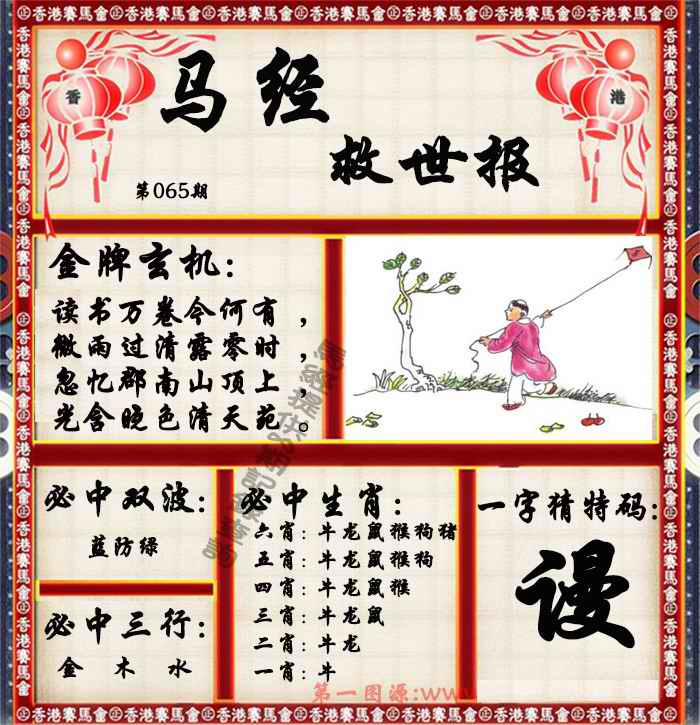 香港賽馬會
香
港
马经
救世报
第065期
金牌玄机:
读书万卷今何有，
微雨过清露零时，
忽忆郡南山顶上，
光含晓色清天苑。
必中双波:
蓝防绿
必中三行:
金 木 水
必中生肖:
六肖: 牛龙鼠猴狗猪
五肖: 牛龙鼠猴狗
四肖: 牛龙鼠猴
三肖: 牛龙鼠
二肖: 牛龙
一肖: 牛
一字猜特码:
谩
第一图源:www